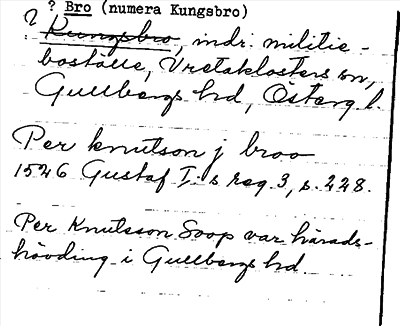 ? Bro (numera Kungsbro)
? Kungsbro, indr. militie-
boställe, Vretaklosters sn,
Gullbergs hd, Österg. l.
Per knutson j broo
1526 Gustaf I:s reg. 3, s. 228.
Per Knutsson Soop var härads-
hövding i Gullbergs hd.